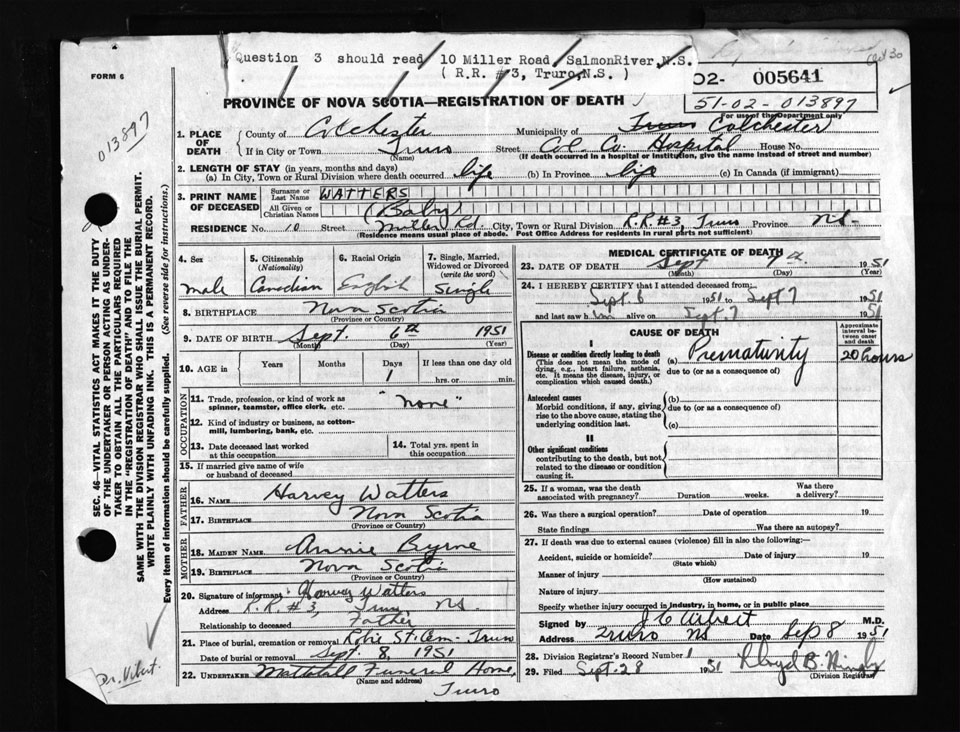 Question 3 should read 10 Miller Road, SalmonRiver, N.S.
( R.R. #3, Truro, N.S. )
Oct 30
FORM 6
02- 005641
51-02-013897
For use of the Department only
013897
PROVINCE OF NOVA SCOTIA—REGISTRATION OF DEATH
1. PLACE OF DEATH
County of Colchester Municipality of Truro Colchester
If in City or Town Truro Street Col. Co. Hospital House No.
(Name) (If death occurred in a hospital or institution, give the name instead of street and number)
2. LENGTH OF STAY (in years, months and days)
(a) In City, Town or Rural Division where death occurred life (b) In Province life (c) In Canada (if immigrant)
3. PRINT NAME OF DECEASED
Surname or Last Name WATTERS
All Given or Christian Names (Baby)
RESIDENCE No. 10 Street Miller Rd. City, Town or Rural Division R.R.#3, Truro Province NS-
(Residence means usual place of abode. Post Office Address for residents in rural parts not sufficient)
4. Sex
male
5. Citizenship (Nationality)
Canadian
6. Racial Origin
English
7. Single, Married, Widowed or Divorced (write the word)
Single
8. BIRTHPLACE Nova Scotia
(Province or Country)
9. DATE OF BIRTH Sept. 6th 1951
(Month) (Day) (Year)
10. AGE in Years Months Days 1 If less than one day old hrs. or min.
OCCUPATION
11. Trade, profession, or kind of work as spinner, teamster, office clerk, etc. "none"
12. Kind of industry or business, as cotton-mill, lumbering, bank, etc.
13. Date deceased last worked at this occupation
14. Total yrs. spent in this occupation
15. If married give name of wife or husband of deceased
FATHER
16. NAME Harvey Watters
17. BIRTHPLACE Nova Scotia
(Province or Country)
MOTHER
18. MAIDEN NAME Annie Byrne
19. BIRTHPLACE Nova Scotia
(Province or Country)
20. Signature of informant Harvey Watters
Address R.R. #3, Truro, NS.
Relationship to deceased Father
21. Place of burial, cremation or removal Robie St. Cem- Truro
Date of burial or removal Sept. 8, 1951
22. UNDERTAKER Mattatall Funeral Home,
(Name and address) Truro
MEDICAL CERTIFICATE OF DEATH
23. DATE OF DEATH Sept 7th 1951
(Month) (Day) (Year)
24. I HEREBY CERTIFY that I attended deceased from:
Sept. 6 1951 to Sept 7 1951
and last saw him alive on Sept. 7 1951
CAUSE OF DEATH
Approximate interval between onset and death
I
Disease or condition directly leading to death (a) Prematurity 20 hours
(This does not mean the mode of dying, e.g., heart failure, asthenia, etc. It means the disease, injury, or complication which caused death.)
due to (or as a consequence of)
Antecedent causes (b)
Morbid conditions, if any, giving rise to the above cause, stating the underlying condition last.
due to (or as a consequence of)
(c)
II
Other significant conditions
contributing to the death, but not related to the disease or condition causing it.
25. If a woman, was the death associated with pregnancy? Duration weeks. Was there a delivery?
26. Was there a surgical operation? Date of operation 19
State findings Was there an autopsy?
27. If death was due to external causes (violence) fill in also the following:—
Accident, suicide or homicide? Date of injury 19
(State which)
Manner of injury
(How sustained)
Nature of injury
Specify whether injury occurred in industry, in home, or in public place
Signed by M.D.
Address Truro NS Date Sep 8 1951
28. Division Registrar's Record Number 1
29. Filed Sept-28 1951 Lloyd B.
(Division Registrar)
SEC. 46—VITAL STATISTICS ACT MAKES IT THE DUTY
OF THE UNDERTAKER OR PERSON ACTING AS UNDER-
TAKER TO OBTAIN ALL THE PARTICULARS REQUIRED
IN THE "REGISTRATION OF DEATH" AND TO FILE THE
SAME WITH THE DIVISION REGISTRAR WHO SHALL ISSUE THE BURIAL PERMIT.
WRITE PLAINLY WITH UNFADING INK. THIS IS A PERMANENT RECORD.
Every item of information should be carefully supplied. (See reverse side for instructions.)
Dr. Vibert.